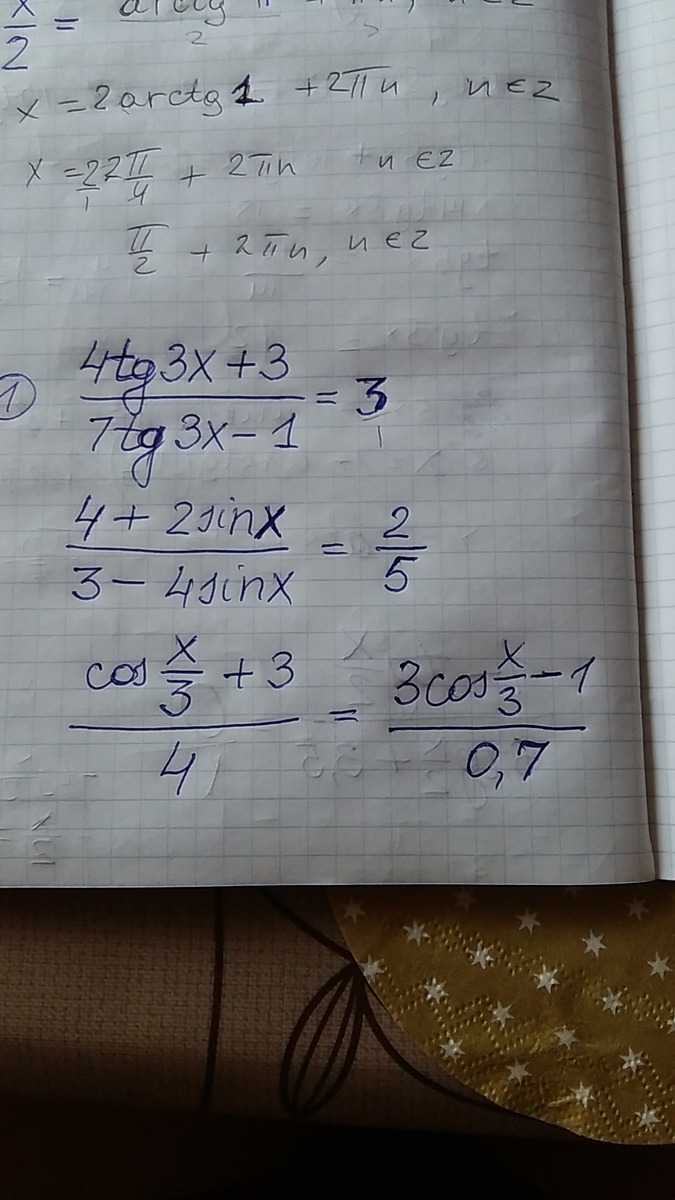 x/2 =
x = 2 arctg 1 + 2πn, n ∈ z
x = 2/1 2π/4 + 2πn n ∈ z
π/2 + 2πn, n ∈ z
1) (4tg3x + 3)/(7tg3x - 1) = 3/1
(4 + 2sinx)/(3 - 4sinx) = 2/5
(cos x/3 + 3)/4 = (3cos x/3 - 1)/0,7